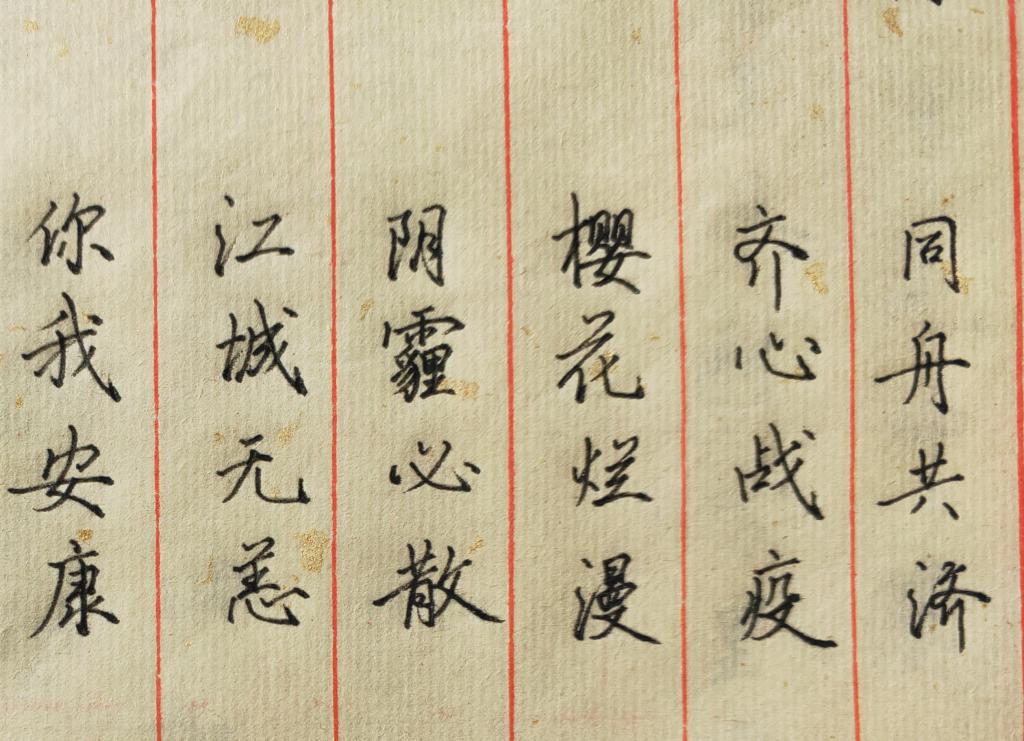 同舟共济
齐心战疫
樱花烂漫
阴霾必散
江城无恙
你我安康